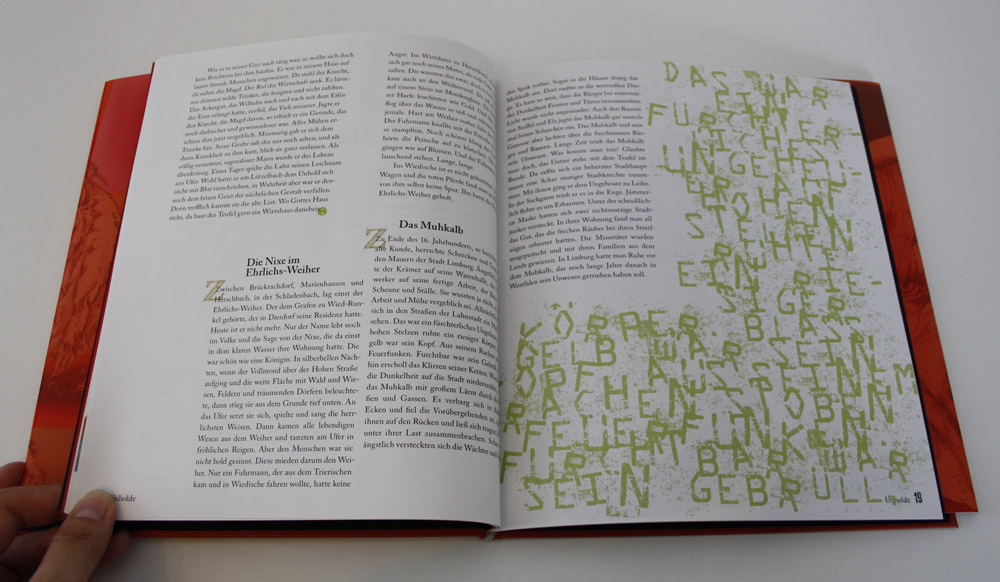 Wie er in seiner Gier auch tätig war, so wollte sich doch
kein Reichtum bei ihm häufen. Er war in seinem Haus auf
lauter fremde Menschen angewiesen. Da stahl der Knecht,
da nahm die Magd. Der Ruf der Wirtschaft sank. Es lärm-
ten drinnen wilde Trinker, die borgten und nicht zahlten.
Das Ackergut, das Wilhelm nach und nach mit dem Erlös
der Erze erlangt hatte, verfiel, das Vieh missriet. Jagte er
den Knecht, die Magd davon, so erhielt er ein Gesinde, das
noch diebischer und gewissenloser war. Alles Mühen er-
schien ihm jetzt vergeblich. Missmutig gab er sich dem
Trunke hin. Seine Grube sah ihn nur noch selten; und als
dann Krankheit zu ihm kam, blieb sie ganz verlassen. Als
völlig verarmter, segensloser Mann wurde er des Lebens
überdrüssig. Eines Tages spülte die Lahn seinen Leichnam
ans Ufer. Wohl hatte er am Lützelbach dem Unhold sich
nicht mit Blut verschrieben, in Wahrheit aber war er den-
noch dem bösen Geist der nächtlichen Gestalt verfallen.
Denn trefflich kannte sie die alte List: Wo Gottes Haus
steht, da baut der Teufel gern ein Wirtshaus daneben.
Die Nixe im
Ehrlichs-Weiher
Zwischen Brückrachdorf, Marienhausen und
Herschbach, in der Schladenbach, lag einst der
Ehrlichs-Weiher. Der dem Grafen zu Wied-Run-
kel gehörte, der in Dierdorf seine Residenz hatte.
Heute ist er nicht mehr. Nur der Name lebt noch
im Volke und die Sage von der Nixe, die da einst
in dem klaren Wasser ihre Wohnung hatte. Die
war schön wie eine Königin. In silberhellen Näch-
ten, wenn der Vollmond über der Hohen Straße
aufging und die weite Fläche mit Wald und Wie-
sen, Feldern und träumenden Dörfern beleuchte-
te, dann stieg sie aus dem Grunde tief unten. An
das Ufer setzte sie sich, spielte und sang die herr-
lichsten Weisen. Dann kamen alle lebendigen
Wesen aus dem Weiher und tanzten am Ufer in
fröhlichen Reigen. Aber den Menschen war sie
nicht hold gesinnt. Diese mieden darum den Wei-
her. Nur ein Fuhrmann, der aus dem Trierischen
kam und in Wiedische fahren wollte, hatte keine
Unholde
Angst. Im Wirtshaus zu
sich gar noch seines Mutes, als
saßen. Die warnten ihn zwar,
kam auch an den Weiherrand. Die
auf einem Stein im Mondschein
er Harfe leuchteten wie Gold.
flog über das Wasser so süß und
jemals. Hart am Weiher vorbei fuhr
Der Fuhrmann knallte mit der
se stampften. Noch schöner klang
hörte die Peitsche auf zu
gingen wie auf Blumen. Und der
lauschend stehen. Lange, lange
Ins Wiedische ist er nicht gekommen.
Wagen und die toten Pferde fand man
von ihm selbst keine Spur. Das hatte
Ehrlichs-Weiher geholt.
Das Muhkalb
Zu Ende des 16. Jahrhunderts, so
alte Kunde, herrschte Schrecken und
den Mauern der Stadt Limburg.
te der Krämer auf seine Warenhalle,
werker auf seine fertige Arbeit, der
Scheune und Ställe. Sie wussten ja nicht,
Arbeit und Mühe vergeblich sei.
sich in den Straßen der Lahnstadt ein
sehen. Das war ein fürchterliches
hohen Stelzen ruhte ein riesiger
gelb war sein Kopf. Aus seinem Rachen
Feuerfunken. Furchtbar war sein
hin erscholl das Klirren seiner Ketten.
die Dunkelheit auf die Stadt
das Muhkalb mit großem Lärm durch
ßen und Gassen. Es verbarg sich in
Ecken und fiel die Vorübergehenden an,
ihnen auf den Rücken und ließ sich tragen,
unter ihrer Last zusammenbrachen.
ängstlich versteckten sich die Wächter
den Spuk vorbei. Sogar in die Häuser drang das
Muhkalb ein. Dort raubte er die wertvollen Din-
ge. Es kam so weit, dass die Bürger bei eintreten-
der Dunkelheit Fenster und Türen verrammelten.
Licht wurde nicht angezündet. Auch den Bauern
von Staffel und Elz jagte das Muhkalb gar manch-
mal einen Schrecken ein. Das Muhkalb und sein
Genosse aber lachten über die furchtsamen Bür-
ger und Bauern. Lange Zeit trieb das Muhkalb
sein Unwesen. Was konnte man tun? Glaubte
man doch, das Untier stehe mit dem Teufel im
Bunde. Da raffte sich ein beherzter Stadthaupt-
mann eine Schar mutiger Stadtknechte zusam-
men. Mit ihnen ging er dem Ungeheuer zu Leibe.
In der Sackgasse trieb er es in die Enge. Jämmer-
lich flehte es um Erbarmen. Unter der scheußlich-
en Maske hatten sich zwei nichtsnutzige Stadt-
junker versteckt. In ihrer Wohnung fand man all
das Gut, das die frechen Räuber bei ihren Streif-
zügen erbeutet hatten. Die Missetäter wurden
ausgepeitscht und mit ihren Familien aus dem
Lande gewiesen. In Limburg hatte man Ruhe vor
dem Muhkalb, das noch lange Jahre danach in
Westfalen sein Unwesen getrieben haben soll.
DAS WAR
EIN
FÜRCHTER-
LICHES
UNGEHEUER
AUF
HOHEN
STELZEN
RUHTE
EIN RIE-
SIGER
KÖRPER BLASS-
GELB WAR SEIN
KOPF AUS SEINEM
RACHEN STOBEN
FEUERFUNKEN
FURCHTBAR WAR
SEIN GEBRÜLL
Unholde 19